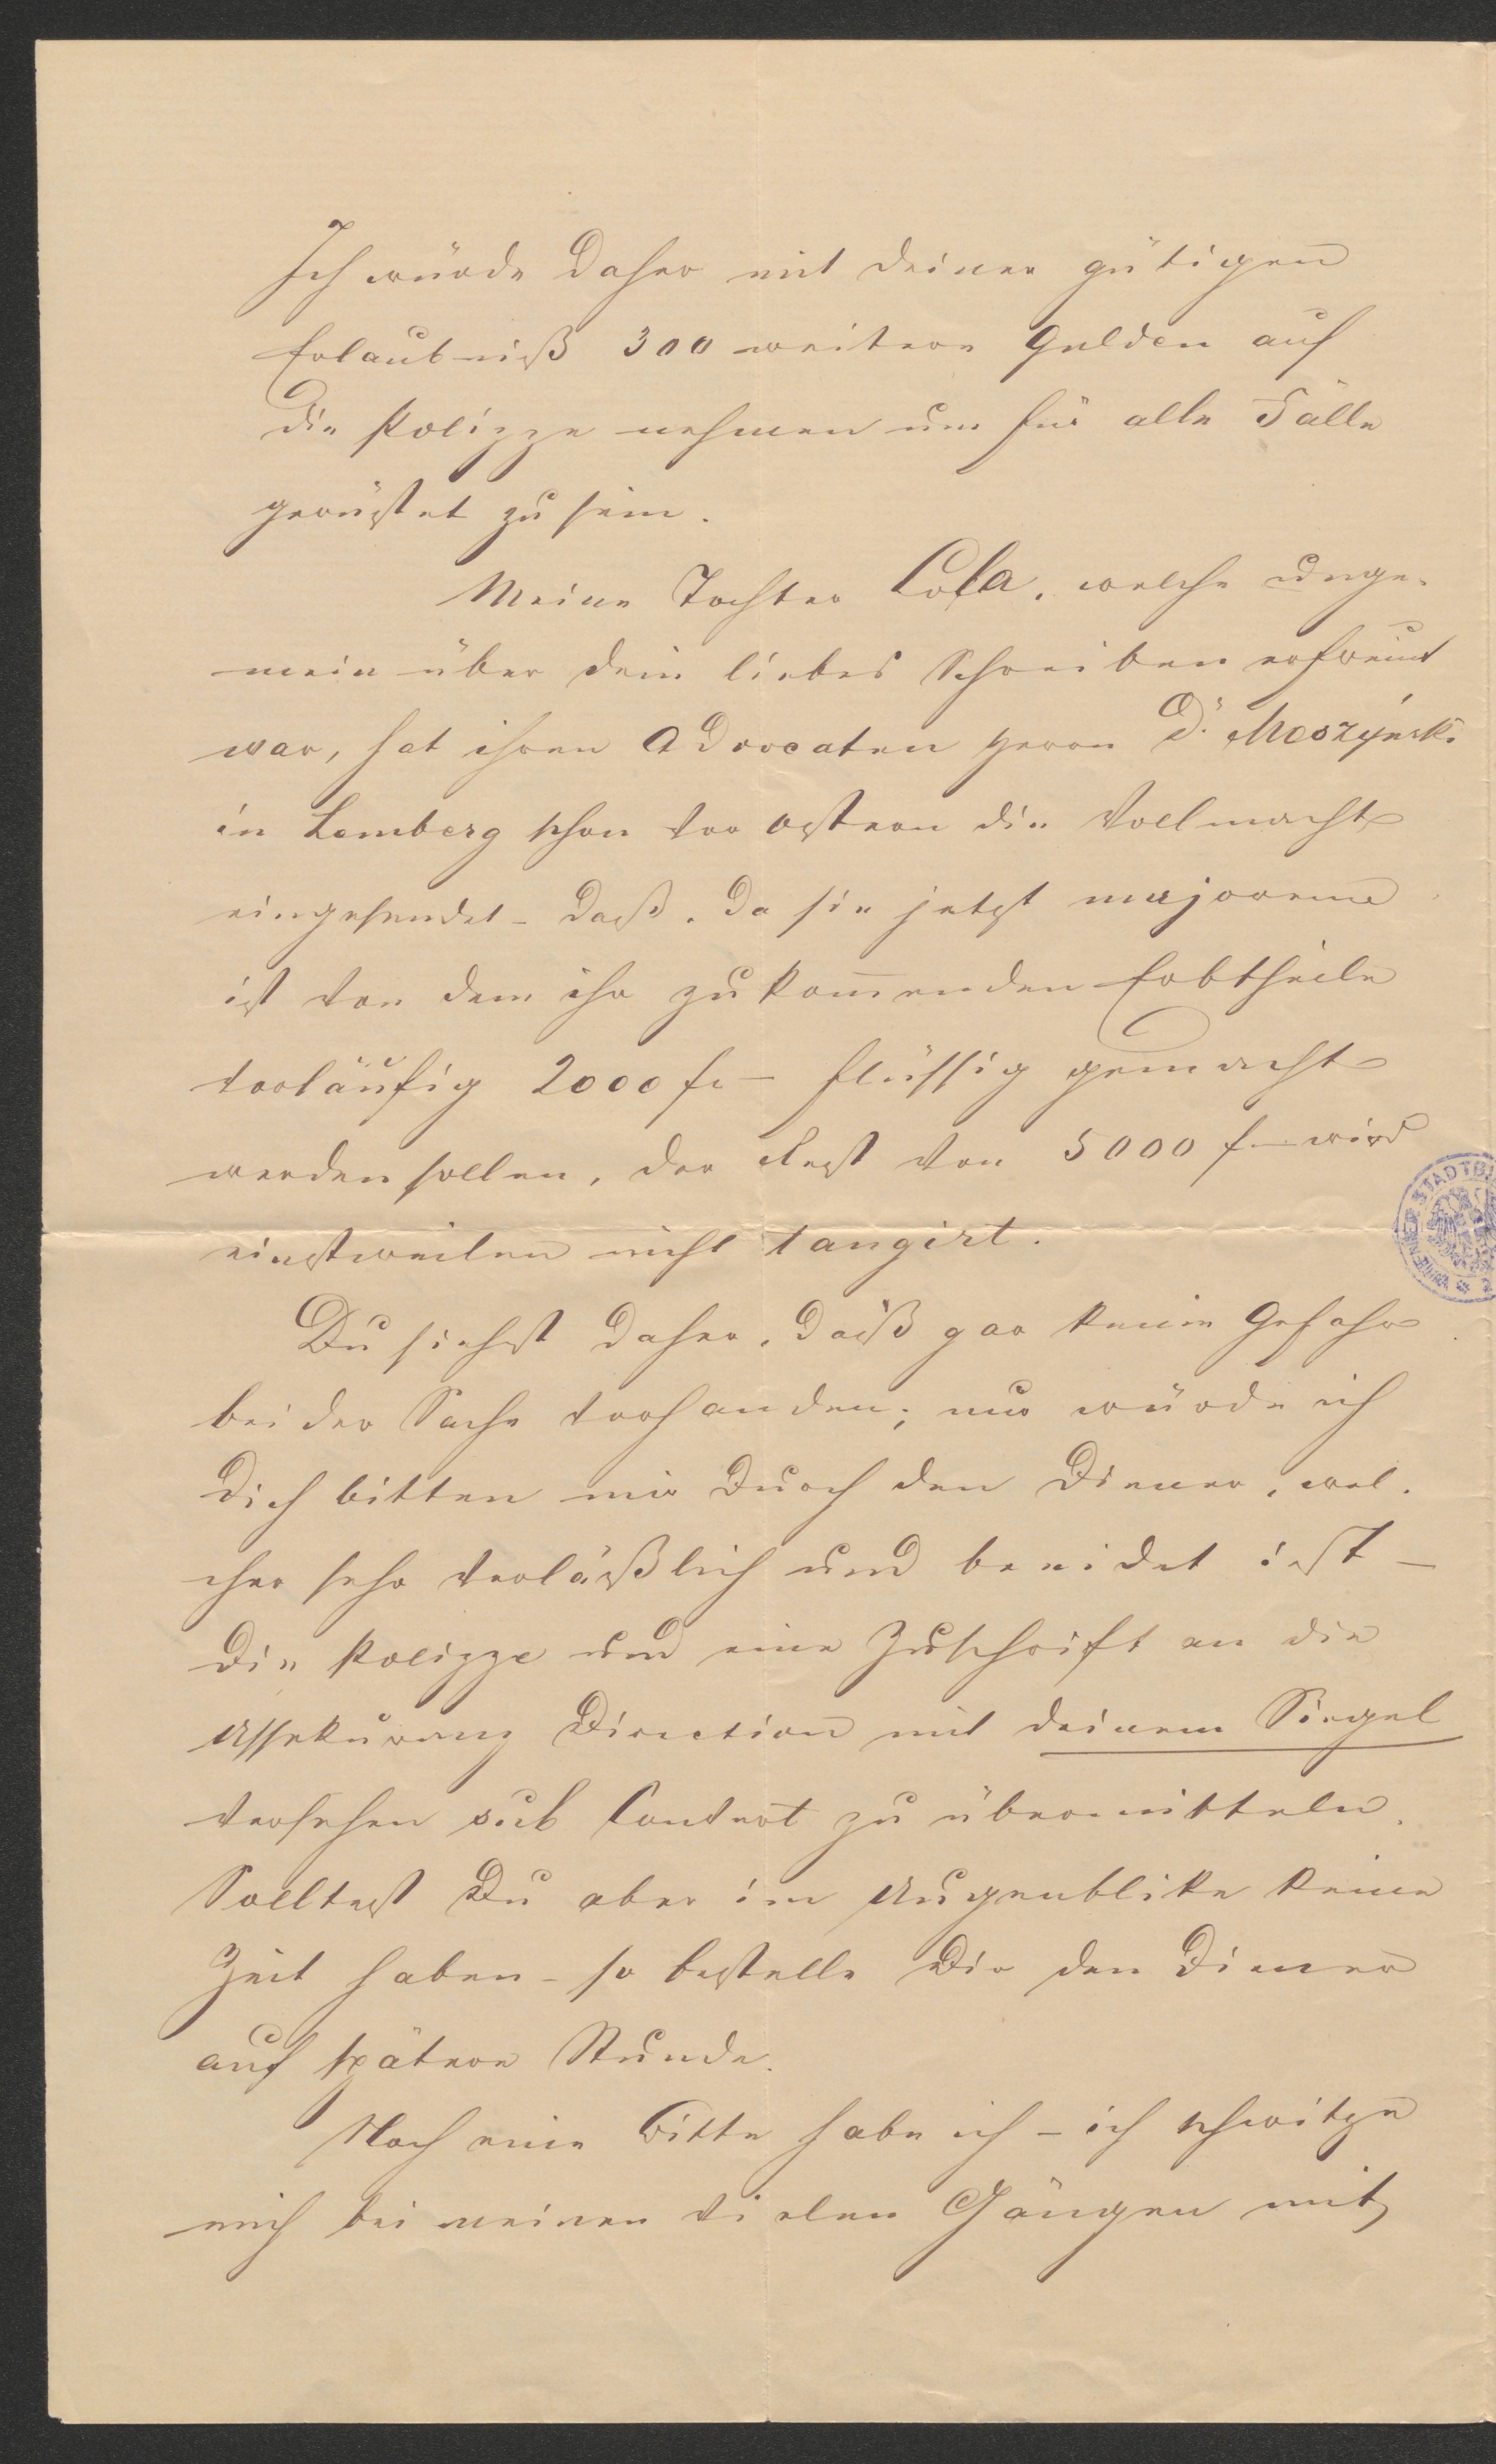 Ich würde daher mit deiner gütigen
Erlaubniß 300 weitere Gulden auf
die Polizze nehmen um für alle Fälle
gerüstet zu sein.
Meine Tochter Lola, welche unge-
mein über dein liebes Schreiben erfreut
war, hat ihren Advocaten Herrn Dr Moszyński
in Lemberg schon vor Ostern die Vollmacht
eingesendet – daß, da sie jetzt majorenn
ist von dem ihr zukom̅enden Erbtheile
vorläufig 2000 fr – flüssig gemacht
werden sollen, der Rest von 5000 f – wird
einstweilen nicht tangirt.
Du siehst daher, daß gar keine Gefahr
bei der Sache vorhanden; nur würde ich
dich bitten mir durch den Diener, wel-
cher sehr verläßlich und beeidet ist –
die Polizze und eine Zuschrift an die
Assekuranz Direction mit deinem Siegel
versehen sub Convert zu übermitteln.
Solltest Du aber im Augenblike keine
Zeit haben – so bestelle Dir den Diener
auf spätere Stunde.
Noch eine Bitte habe ich – ich schwitze
mich bei meinen vielen Gängen mit
WIENER STADTBI